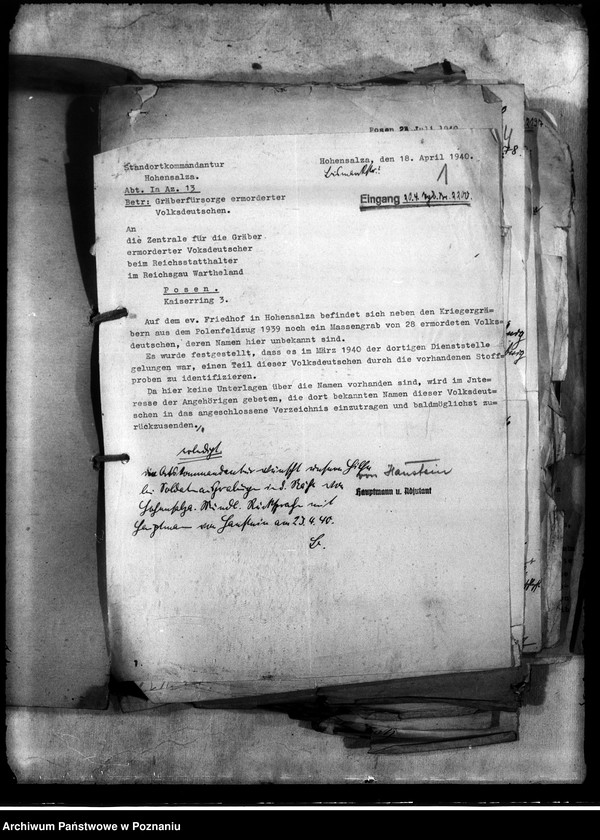 Posen 28 Juli 1940
Standortkommandantur
Hohensalza.
Hohensalza, den 18. April 1940.
Abt. Ia Az. 13
Betr: Gräberfürsorge ermorderter
Volksdeutschen.
1
Eingang 20.4.
An
die Zentrale für die Gräber
ermorderter Voksdeutscher
beim Reichsstatthalter
im Reichsgau Wartheland
Posen.
Kaiserring 3.
Auf dem ev. Friedhof in Hohensalza befindet sich neben den Kriegergrä=
bern aus dem Polenfeldzug 1939 noch ein Massengrab von 28 ermordeten Volks=
deutschen, deren Namen hier unbekannt sind.
Es wurde festgestellt, dass es im März 1940 der dortigen Dienststelle
gelungen war, einen Teil dieser Volksdeutschen durch die vorhandenen Stoff=
proben zu identifizieren.
Da hier keine Unterlagen über die Namen vorhanden sind, wird im Jnte=
resse der Angehörigen gebeten, die dort bekannten Namen dieser Volksdeut=
schen in das angeschlossene Verzeichnis einzutragen und baldmöglichst zu=
rückzusenden.
erledigt
von Hanstein
Hauptmann u. Adjutant
Hohensalza. Mündl. Rücksprache mit
Hauptmann von Hanstein am 23.4.40.
Archiwum Państwowe w Poznaniu